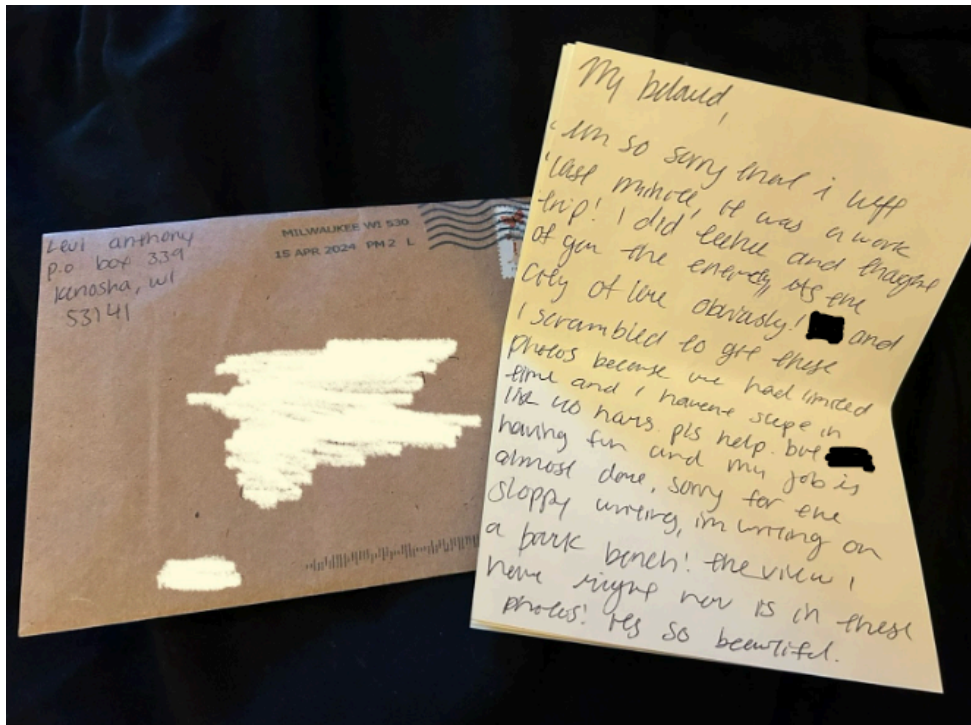 Levi anthony
P.O box 339
Kenosha, WI
53141
MILWAUKEE WI 530
15 APR 2024 PM 2 L
My beloved,
im so sorry that i left
last minute, it was a work
trip! I did and thought
of you the entirety, its the
City of love obviously! and
I scrambled to get these
photos because we had limited
time and I havent slepe in
like 40 hours. pls help. but
having fun and my job is
almost done, sorry for the
sloppy writing, im writing on
a park bench! the view I
have right now is in these
photos! its so beautiful.